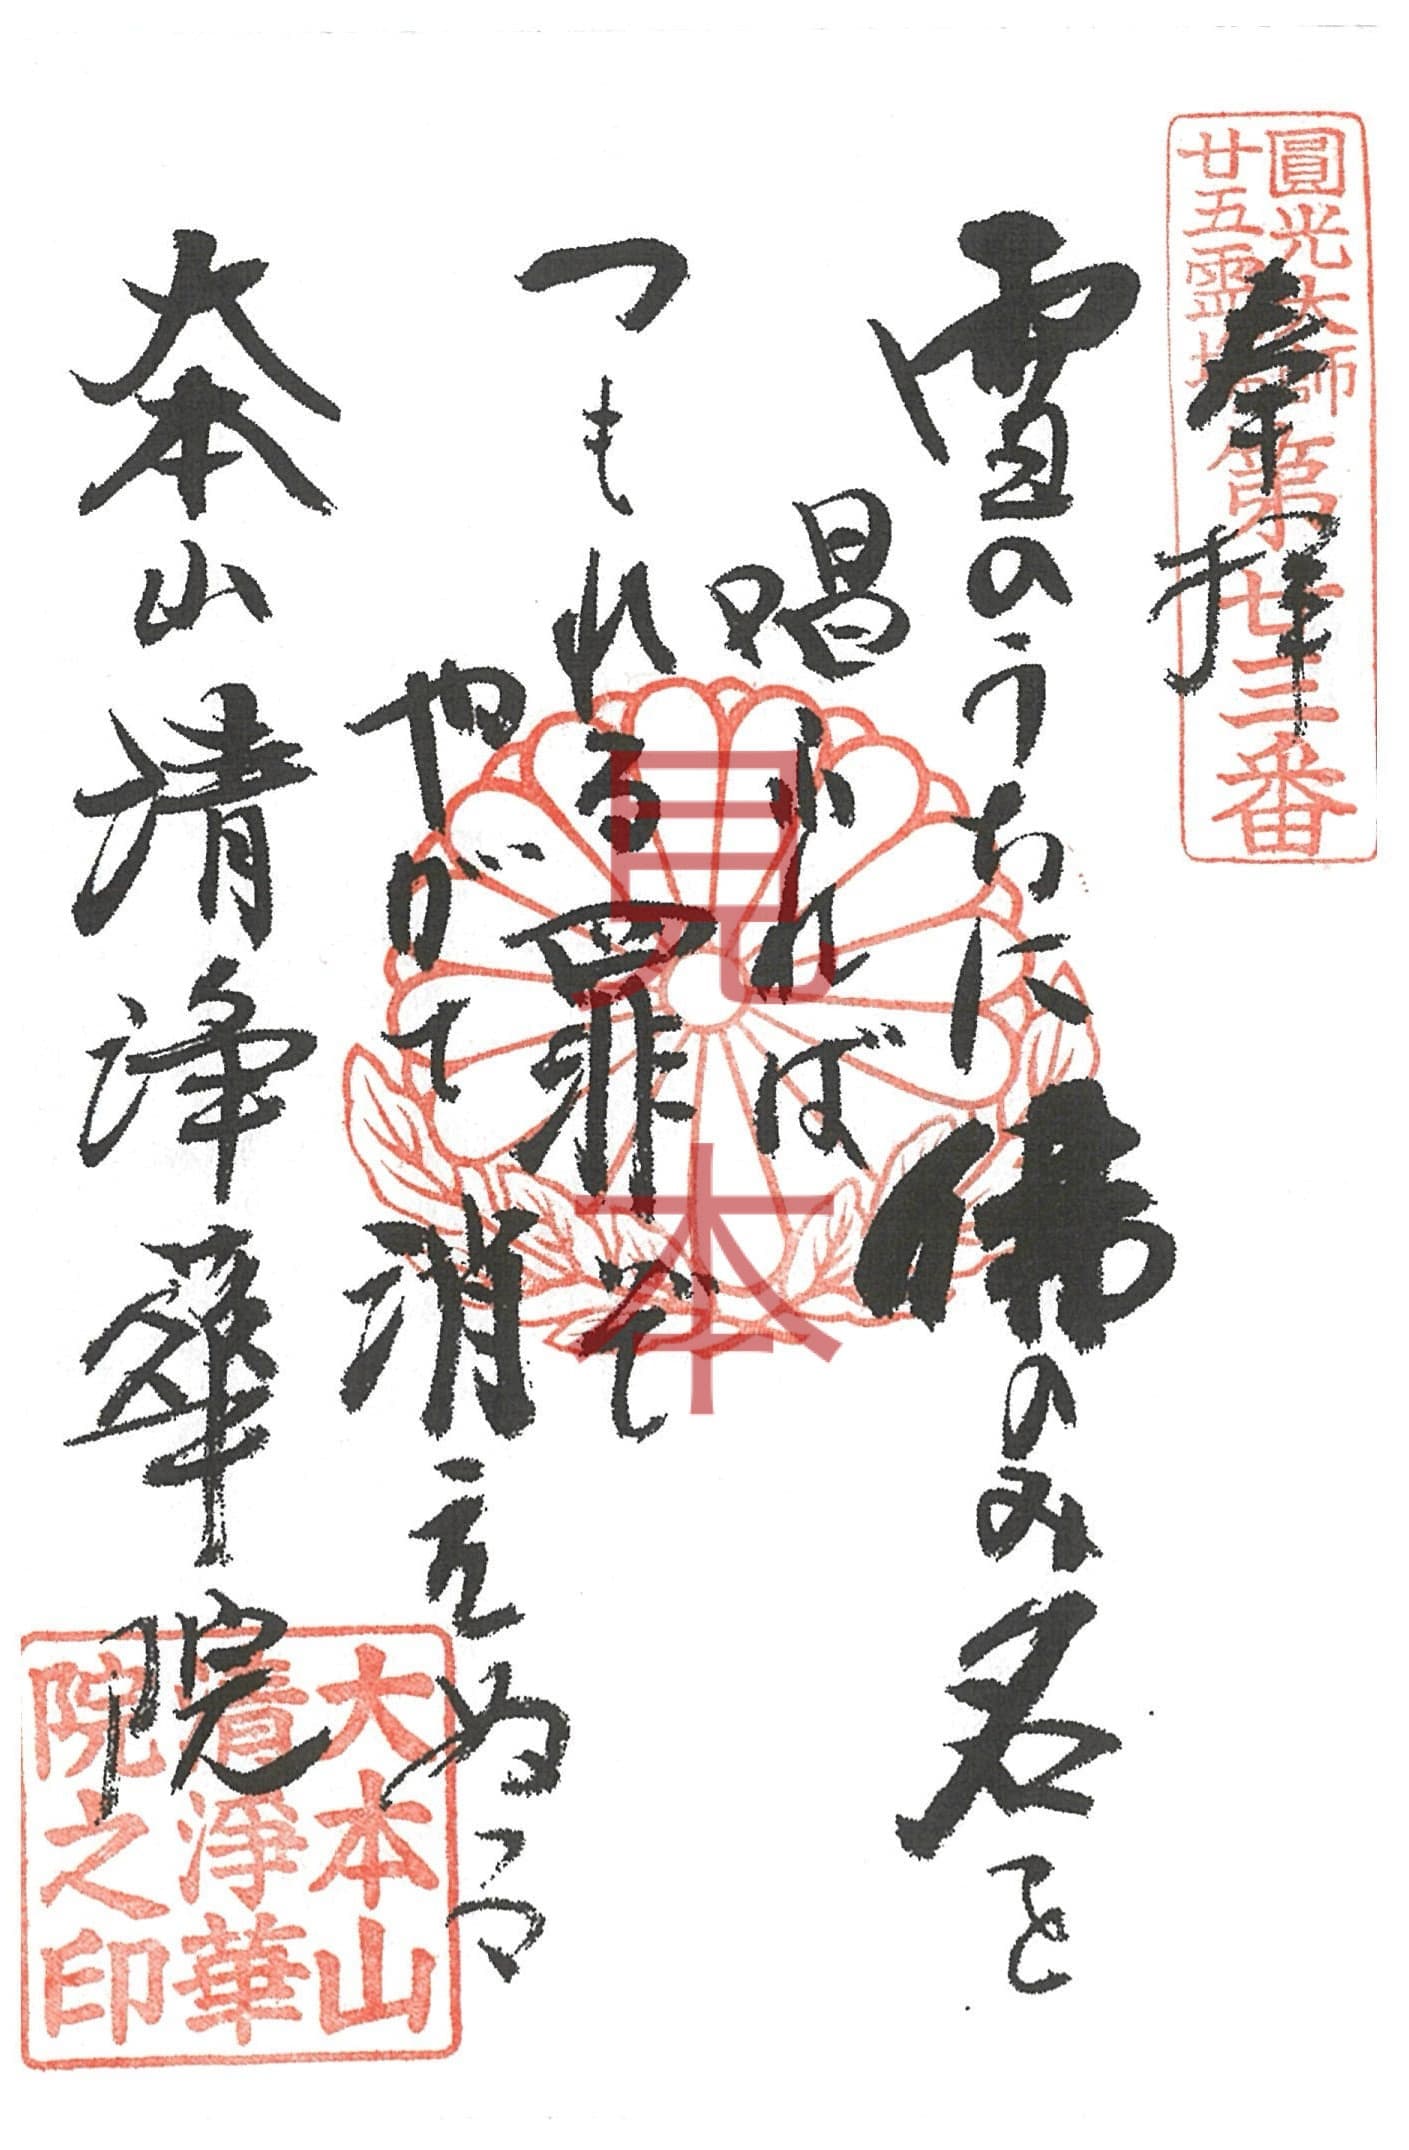 圓光大師
廿五霊場
第廿三番
奉拝
雪のうちに佛のみ名を
唱ふれば
つもれる罪ぞ
やがて消えぬる
大本山清浄華院
大本山
清淨華
院之印
見本